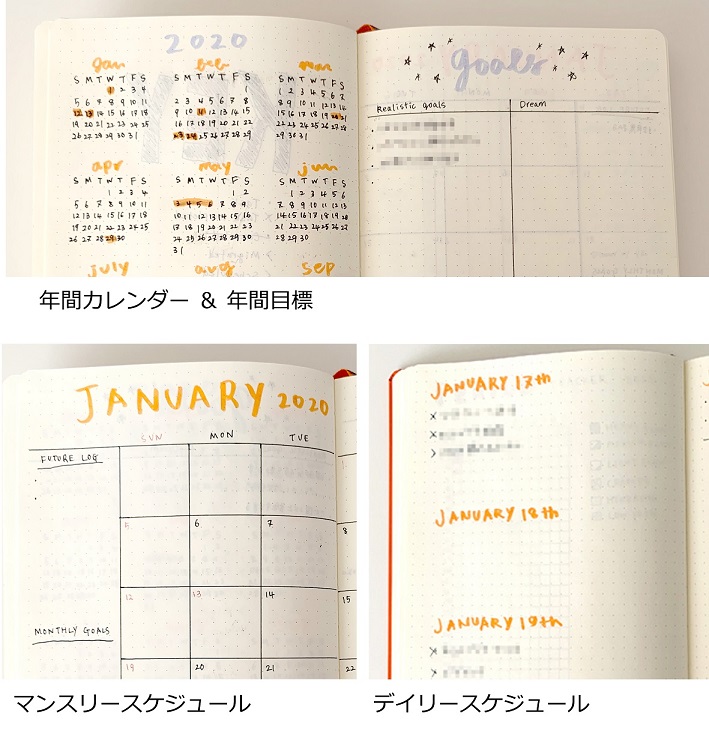 2020
goals
Jan feb mar
S M T W T F S S M T W T F S S M T W T F S
1 2 3 4 1 1 2 3 4 5 6 7
5 6 7 8 9 10 11 2 3 4 5 6 7 8 8 9 10 11 12 13 14
12 13 14 15 16 17 18 9 10 11 12 13 14 15 15 16 17 18 19 20 21
19 20 21 22 23 24 25 16 17 18 19 20 21 22 22 23 24 25 26 27 28
26 27 28 29 30 31 23 24 25 26 27 28 29 29 30 31
apr may jun
S M T W T F S S M T W T F S S M T W T F S
1 2 3 4 1 2 1 2 3 4 5 6
5 6 7 8 9 10 11 3 4 5 6 7 8 9 7 8 9 10 11 12 13
12 13 14 15 16 17 18 10 11 12 13 14 15 16 14 15 16 17 18 19 20
19 20 21 22 23 24 25 17 18 19 20 21 22 23 21 22 23 24 25 26 27
26 27 28 29 30 24 25 26 27 28 29 30 28 29 30
31
july aug sep
Realistic Goals Dream
年間カレンダー & 年間目標
JANUARY 2020
SUN MON TUE
FUTURE LOG
5 6 7 8
12 13 14 15
MONTHLY GOALS
19 20 21 22
マンスリースケジュール
JANUARY 17th
JANUARY 18th
JANUARY 19th
デイリースケジュール